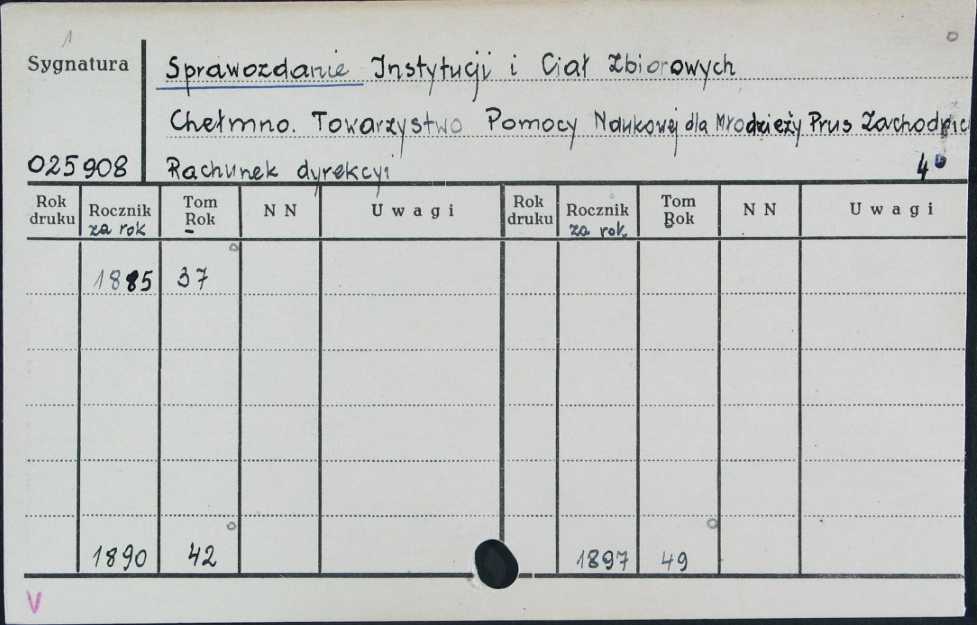 1
Sygnatura
Sprawozdanie Instytucji i Ciał Zbiorowych
Chełmno. Towarzystwo Pomocy Naukowej dla Młodzieży Prus Zachodnic
025908
Rachunek dyrekcyi
4°
Rok druku Rocznik za rok Tom Rok NN Uwagi Rok druku Rocznik za rok Tom Rok NN Uwagi
1885 37
1890 42 1897 49
V